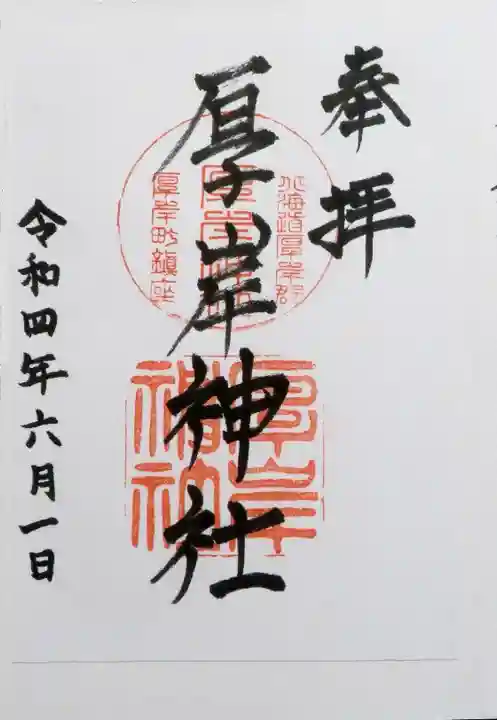 奉拝
厚岸神社
令和四年六月一日
北海道厚岸郡
厚岸神社
厚岸町鎮座
厚岸
神社